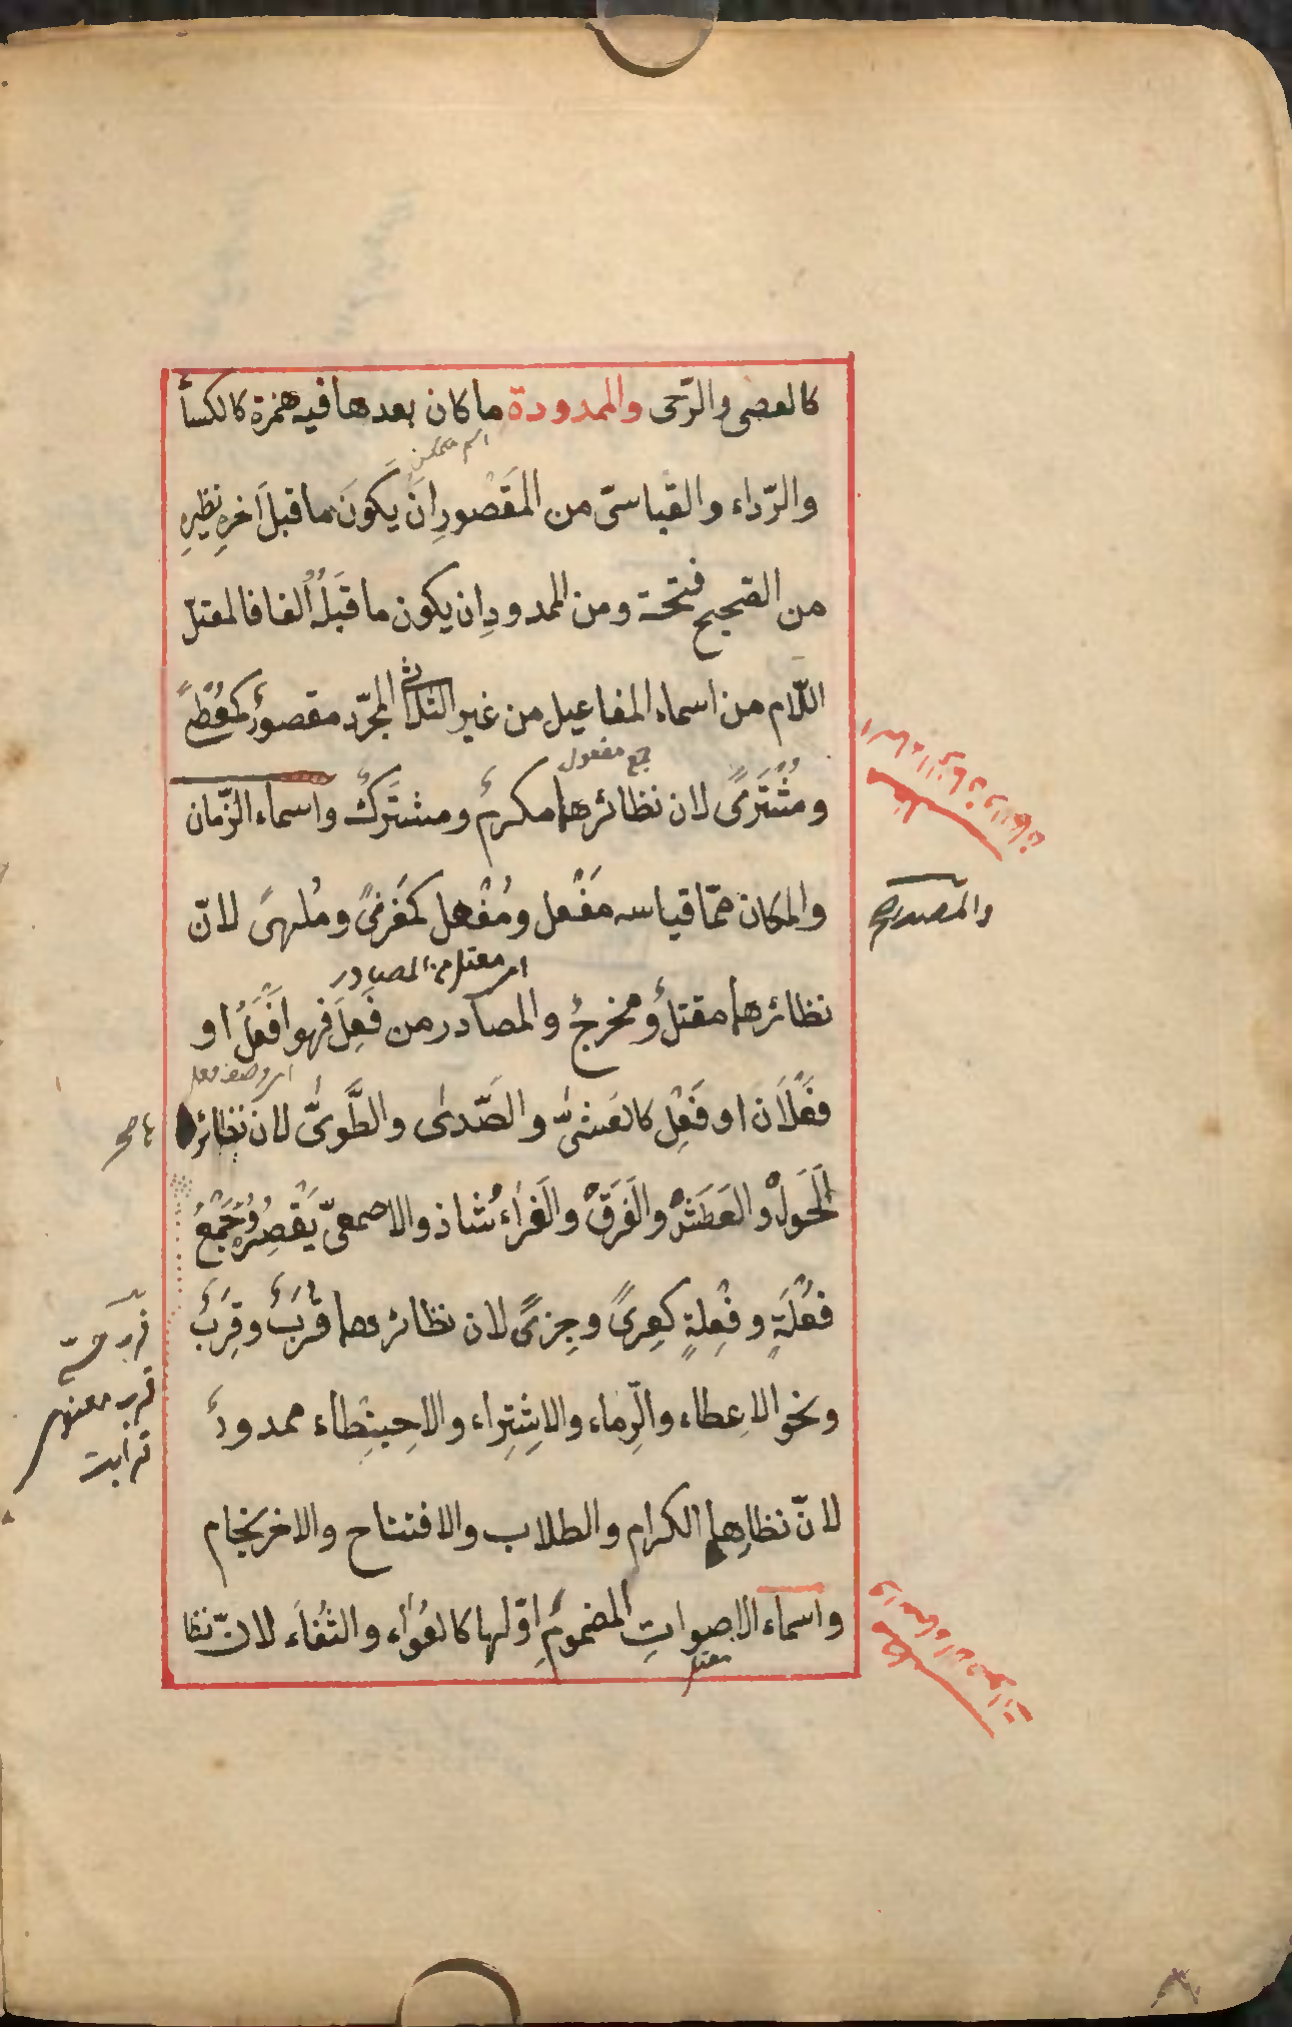 كالعصى والرّحى والممدودة ماكان بعدها فيه همزة كالكسأ
اسم متمكن
والرّداء والقياسىّ من المَقْصُورِ انَ يَكوُنَ ماقبلَ اخرِهِ نظيرِهِ
من الصحيح فتحة ومن الممدودِ ان يكون ماقَبَلَهُ اُلفا فالمعتلّ
اللّام من اسماء المفاعيل من غير الثلاثى المجرّد مقصورٌ كمُعْطًى
جمع مفعول
ومُشْتَرًى لان نظائرهما مكرمٌ ومشتَركٌ واسماء الزّمان
والمكان ممّا قياسه مَفْعل ومُفْعل كمَغزىً ومُلهىً لانّ
والمصدر صح
اى معتل من المصادر
نظائرهما مقتلٌ ومخرجٌ والمصادر من فَعِلَ فهو اَفْعَلُ او
فَعْلَان او فَعِْل كالعَشىٰ والصَّدىٰ والطَّوىٰ لان نظائر
ها صح
الحَوَلْ والعَطَشْ والفَرَقْ والغَراءُ شاذ والاصمعىّ يَقْصِرُهُ وجَمْعُ
فُعْلَةٍ وفِعْلةٍ كعِرىً وجِزىً لان نظائرهما قُرَبٌ وقِرَبٌ
ونحو الاعِطاء والرِّماء والاِشِتِراء والاحِبنِطاء ممدودٌ
لانّ نظايرهما الكرام والطلاب والافتتاح والاخرنجام
واسماء الاصواتِ المضمومِ اوّلها كالعُوٰاء والثُغاَء لانّ نظا
معتل
واسماء الاصوات